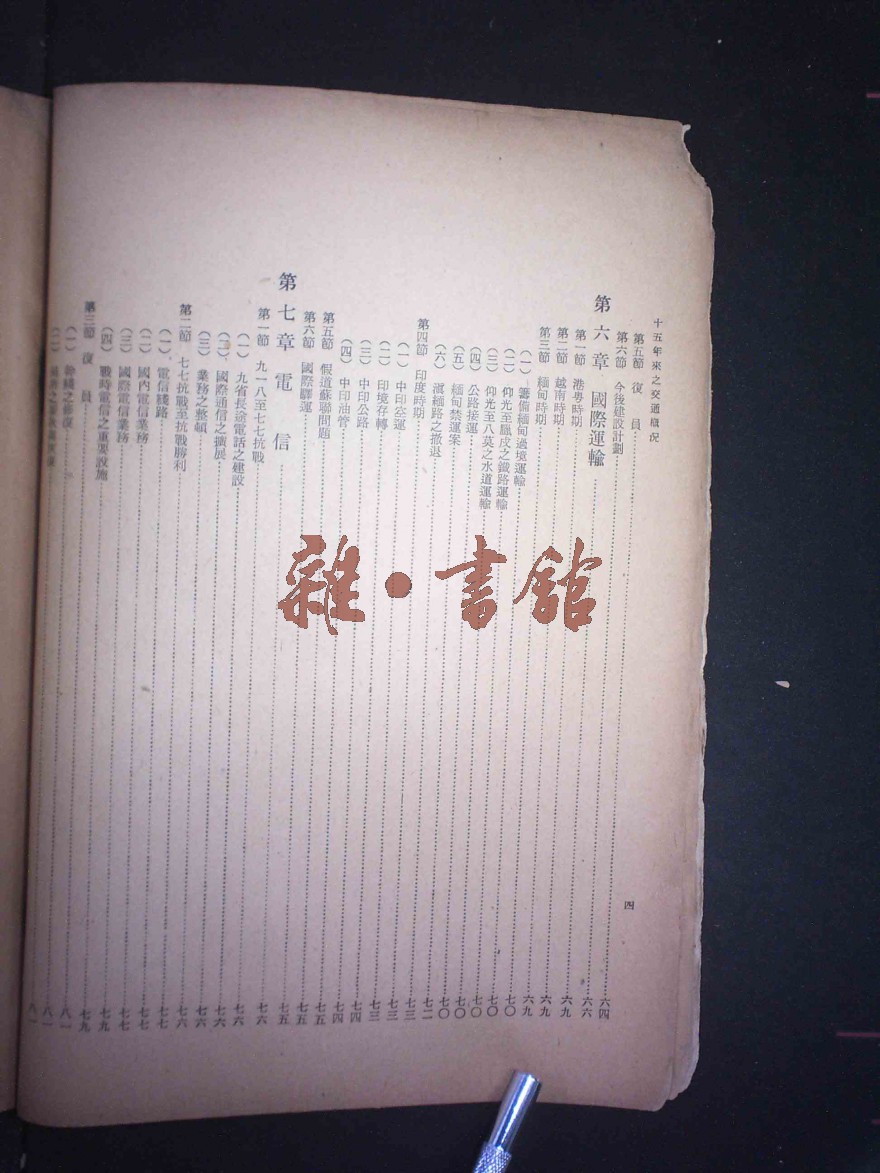 十五年來之交通概況
四
第五節 復員……六四
第六節 今後建設計劃……六六
第六章 國際運輸……六九
第一節 港粵時期……六九
第二節 越南時期……六九
第三節 緬甸時期……七〇
(一) 籌備緬甸過境運輸……七〇
(二) 仰光至臘戌之鐵路運輸……七〇
(三) 仰光至八莫之水道運輸……七〇
(四) 公路接運……七〇
(五) 緬甸禁運案……七二
(六) 滇緬路之撤退……七三
第四節 印度時期……七三
(一) 中印空運……七三
(二) 印境存轉……七四
(三) 中印公路……七四
(四) 中印油管……七五
第五節 假道蘇聯問題……七五
第六節 國際驛運……七五
第七章 電信……七六
第一節 九一八至七七抗戰……七六
(一) 九省長途電話之建設……七六
(二) 國際通信之擴展……七六
(三) 業務之整頓……七六
第二節 七七抗戰至抗戰勝利……七七
(一) 電信綫路……七七
(二) 國內電信業務……七七
(三) 國際電信業務……七九
(四) 戰時電信之重要設施……七九
第三節 復員……八一
(一) 幹綫之修復……八一
(二)……八一
雜·書館